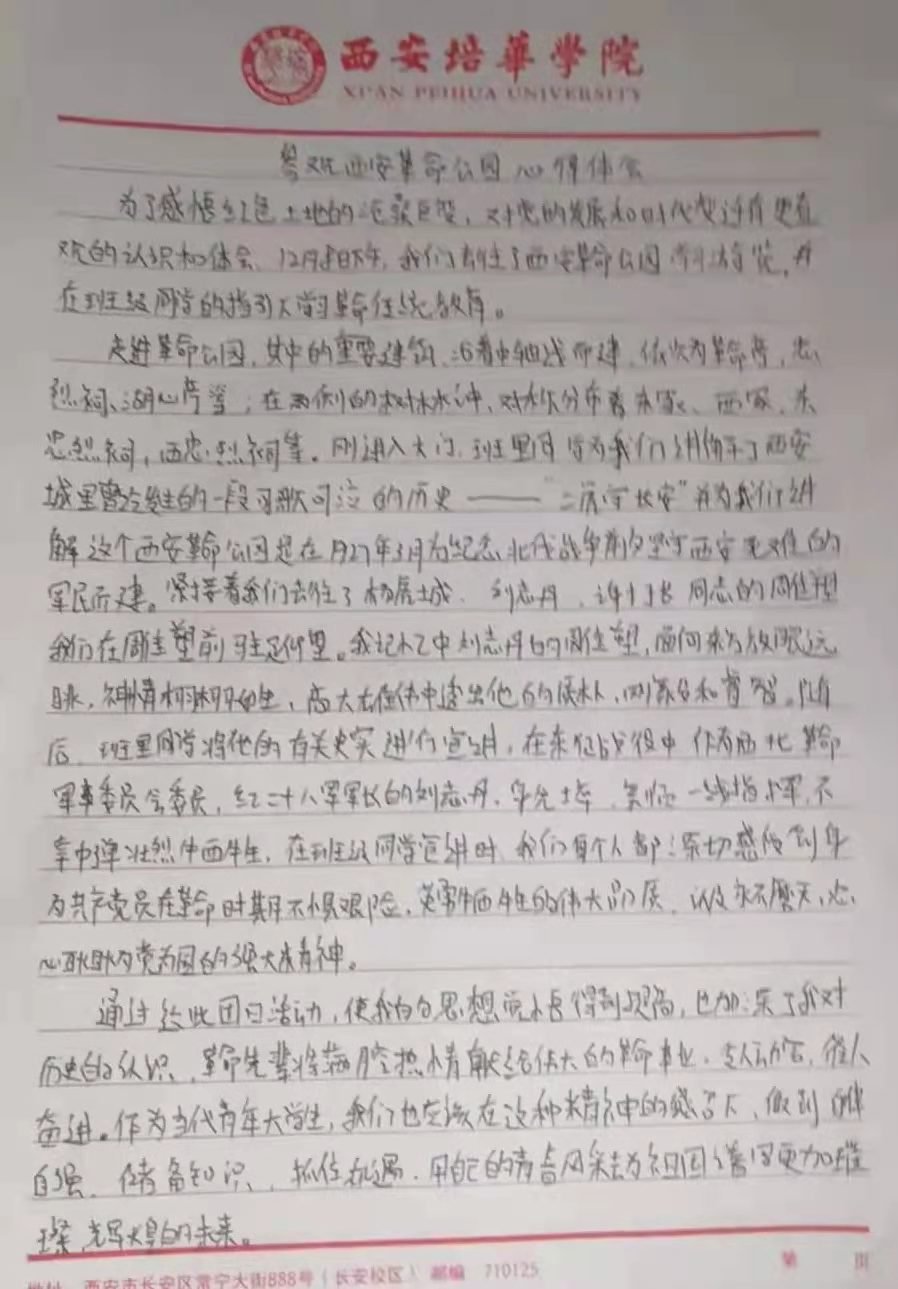 西安培華学院
XI'AN PEIHUA UNIVERSITY
参观西安革命公园心得体会
为了感悟红色土地的沧桑巨变，对党的发展和时代变迁有更直
观的认识和体会，12月8日下午，我们去往了西安革命公园，并
在班级同学的指引下学习革命传统教育。
走进革命公园，其中的重要建筑沿着中轴线而建，依次为革命亭，忠
烈祠、湖心亭等；在两侧的树林中，对称分布着东冢、西冢、东
忠烈祠，西忠烈祠等。刚进入大门，班里同学为我们讲解了西安
城里曾经发生的一段可歌可泣的历史——“二虎守长安”并为我们讲
解这个西安革命公园是在1927年3月为纪念北伐战争前夕坚守西安死难的
军民而建。紧接着我们去往了杨虎城、刘志丹、谢子长同志的周生塑
我们在周生塑前驻足仰望。我记忆中刘志丹的周生塑，面向东方放眼远
眺，神情栩栩如生，高大雄伟中透出他的深沉、刚毅和睿智。随
后，班里同学将他的有关史实进行宣讲，在东征战役中作为西北革命
军事委员会委员，红二十八军军长的刘志丹，身先士卒，亲临一线指挥，不
幸中弹壮烈牺牲，在班级同学宣讲时，我们每个人都深切感受到身
为共产党员在革命时期不惧艰险，英勇牺牲的伟大品质，以及永不磨灭，忠
心耿耿为党为国的强大精神。
通过这此团日活动，使我的思想觉悟得到提高，也加深了我对
历史的认识，革命先辈将满腔热情献给伟大的革命事业，令人
奋进。作为当代青年大学生，我们也应该在这种精神的感召下，做到
自强、储备知识、抓住机遇，用自己的青春风采去为祖国谱写更加璀
璨，辉煌的未来。
第 页
地址：西安市长安区常宁大街888号（长安校区） 邮编 710125